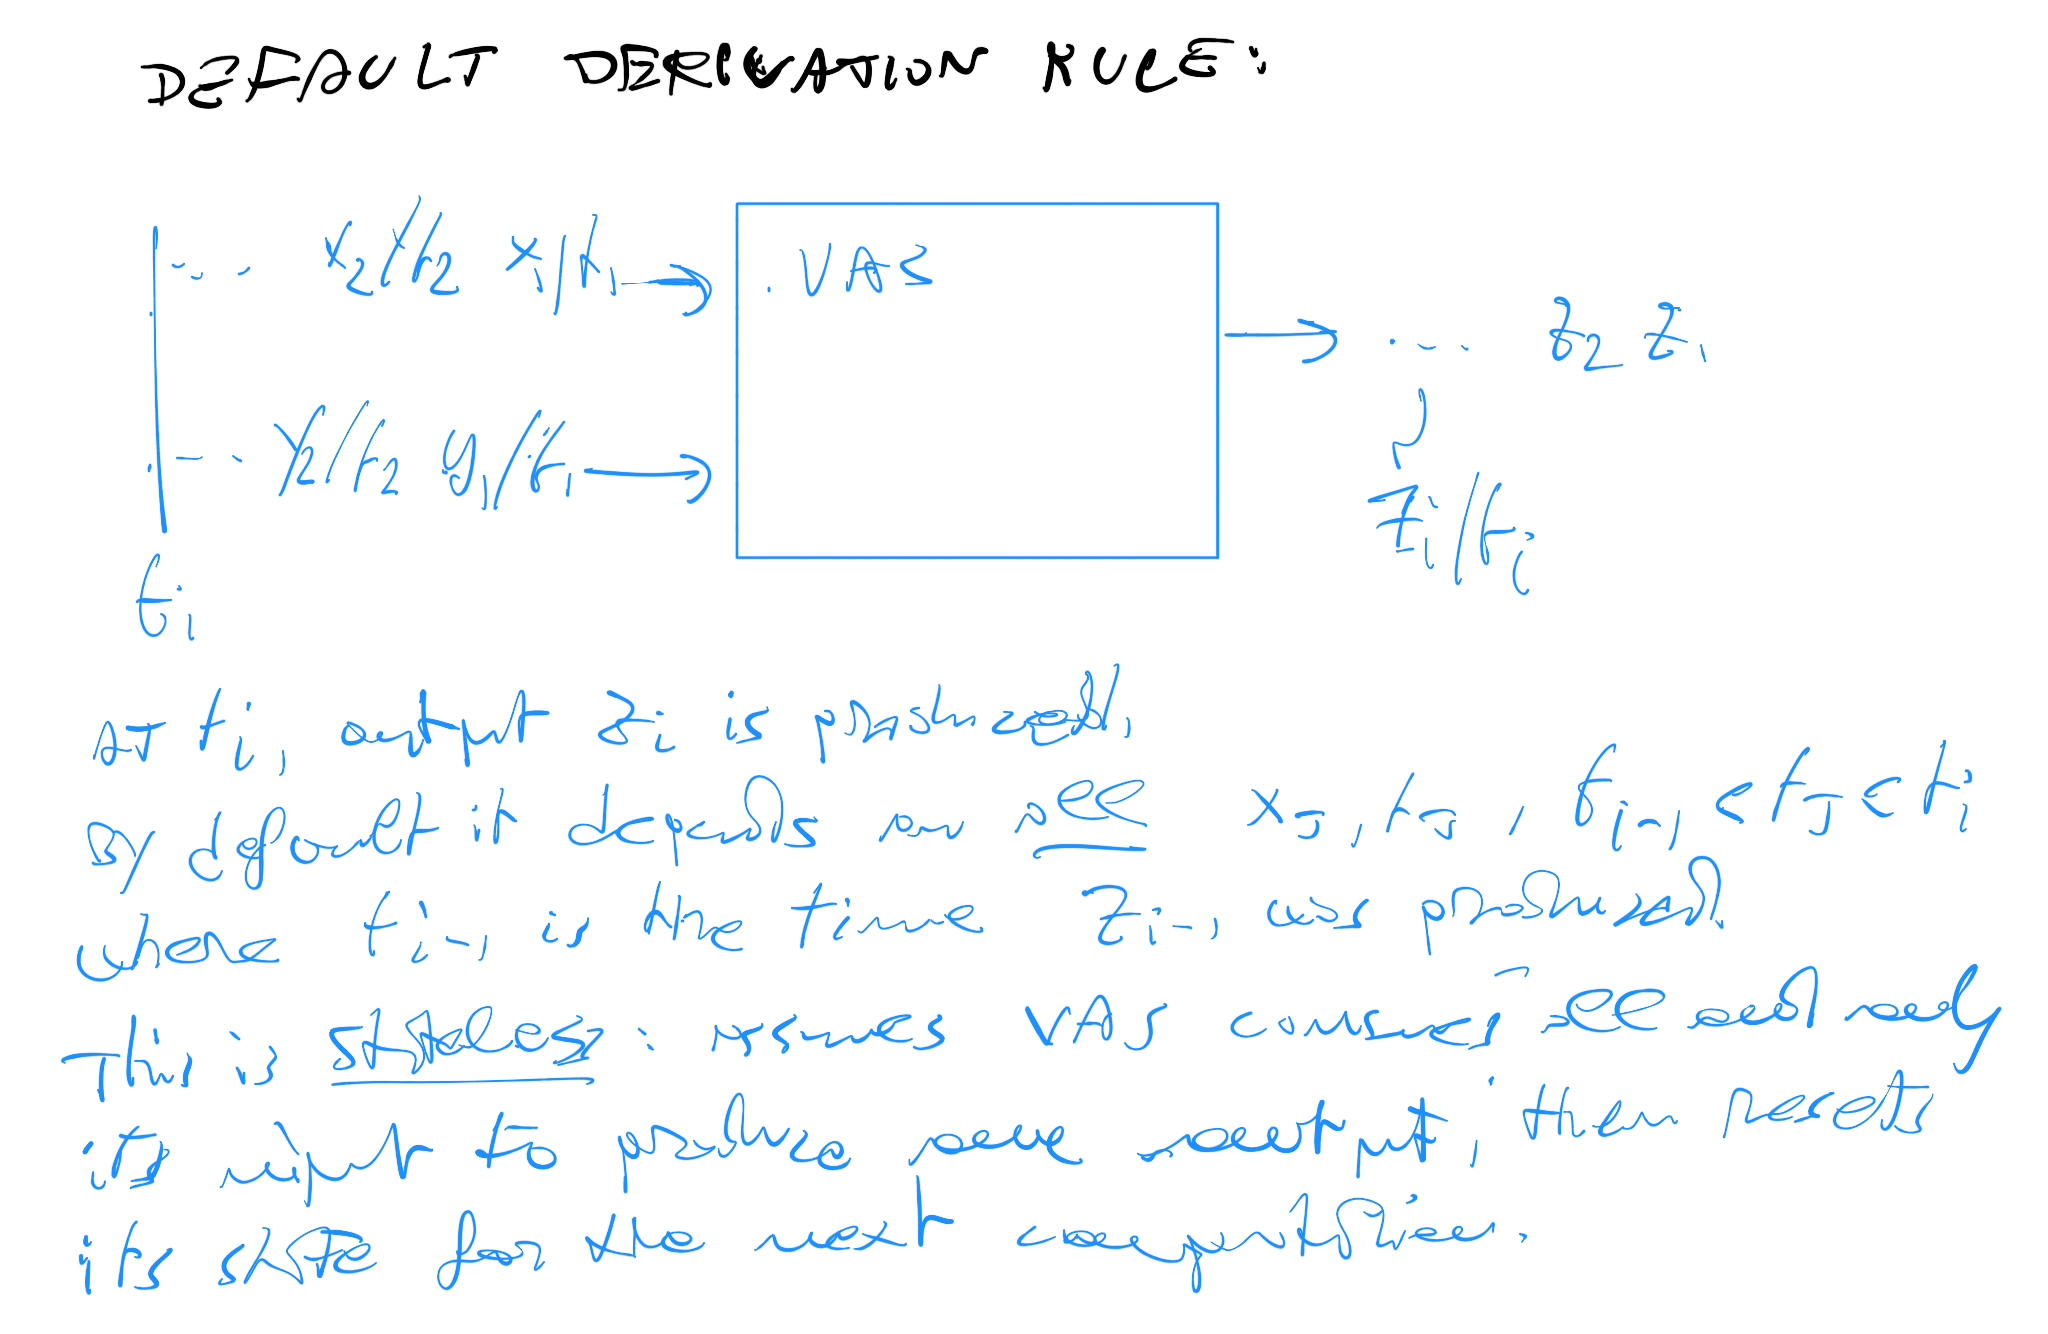 DEFAULT DERIVATION RULE:
... x2/t2 x1/t1 → . VAS
→ ... z2 z1
... y2/t2 y1/t1 →
zi/ti
ti
AT ti, output zi is produced.
By default it depends on all xJ, tJ, ti-1 < tJ < ti
where ti-1 is the time zi-1 was produced.
This is stateless: assumes VAS consumes all and only
its input to produce one output, then resets
its state for the next computation.